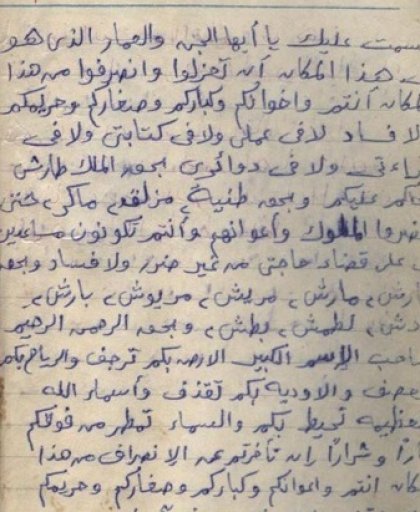 قسمت عليك يا أيها الجن والعمار الذى هو
بهذا المكان أن تعزلوا وانصرفوا من هذا
المكان أنتم واخوانكم وكباركم وصغاركم وحريمكم
لا فساد لا فى عملى ولا فى كتابتى ولا فى
ولا فى دوائرى بحق الملك طارش
عليكم وبحق طنية مزلقم ماكر حتى
الملوك وأعوانهم وأنتم تكونون مساعدين
على قضاء حاجتى من غير ضرر ولا فساد وبحق
مارش، مريش، مريوش، بارش،
لطمش، بطش، وبحق الرحمن الرحيم
صاحب الإسم الكبير الارض بكم ترجف والرياح بكم
تعصف والاودية بكم تقذف وأسماء الله
العظيمه تحيط بكم والسماء تمطر من فوقكم
نارا وشرارا إن تأخرتم عن الإنصراف من هذا
المكان انتم واعوانكم وكباركم وصغاركم وحريمكم